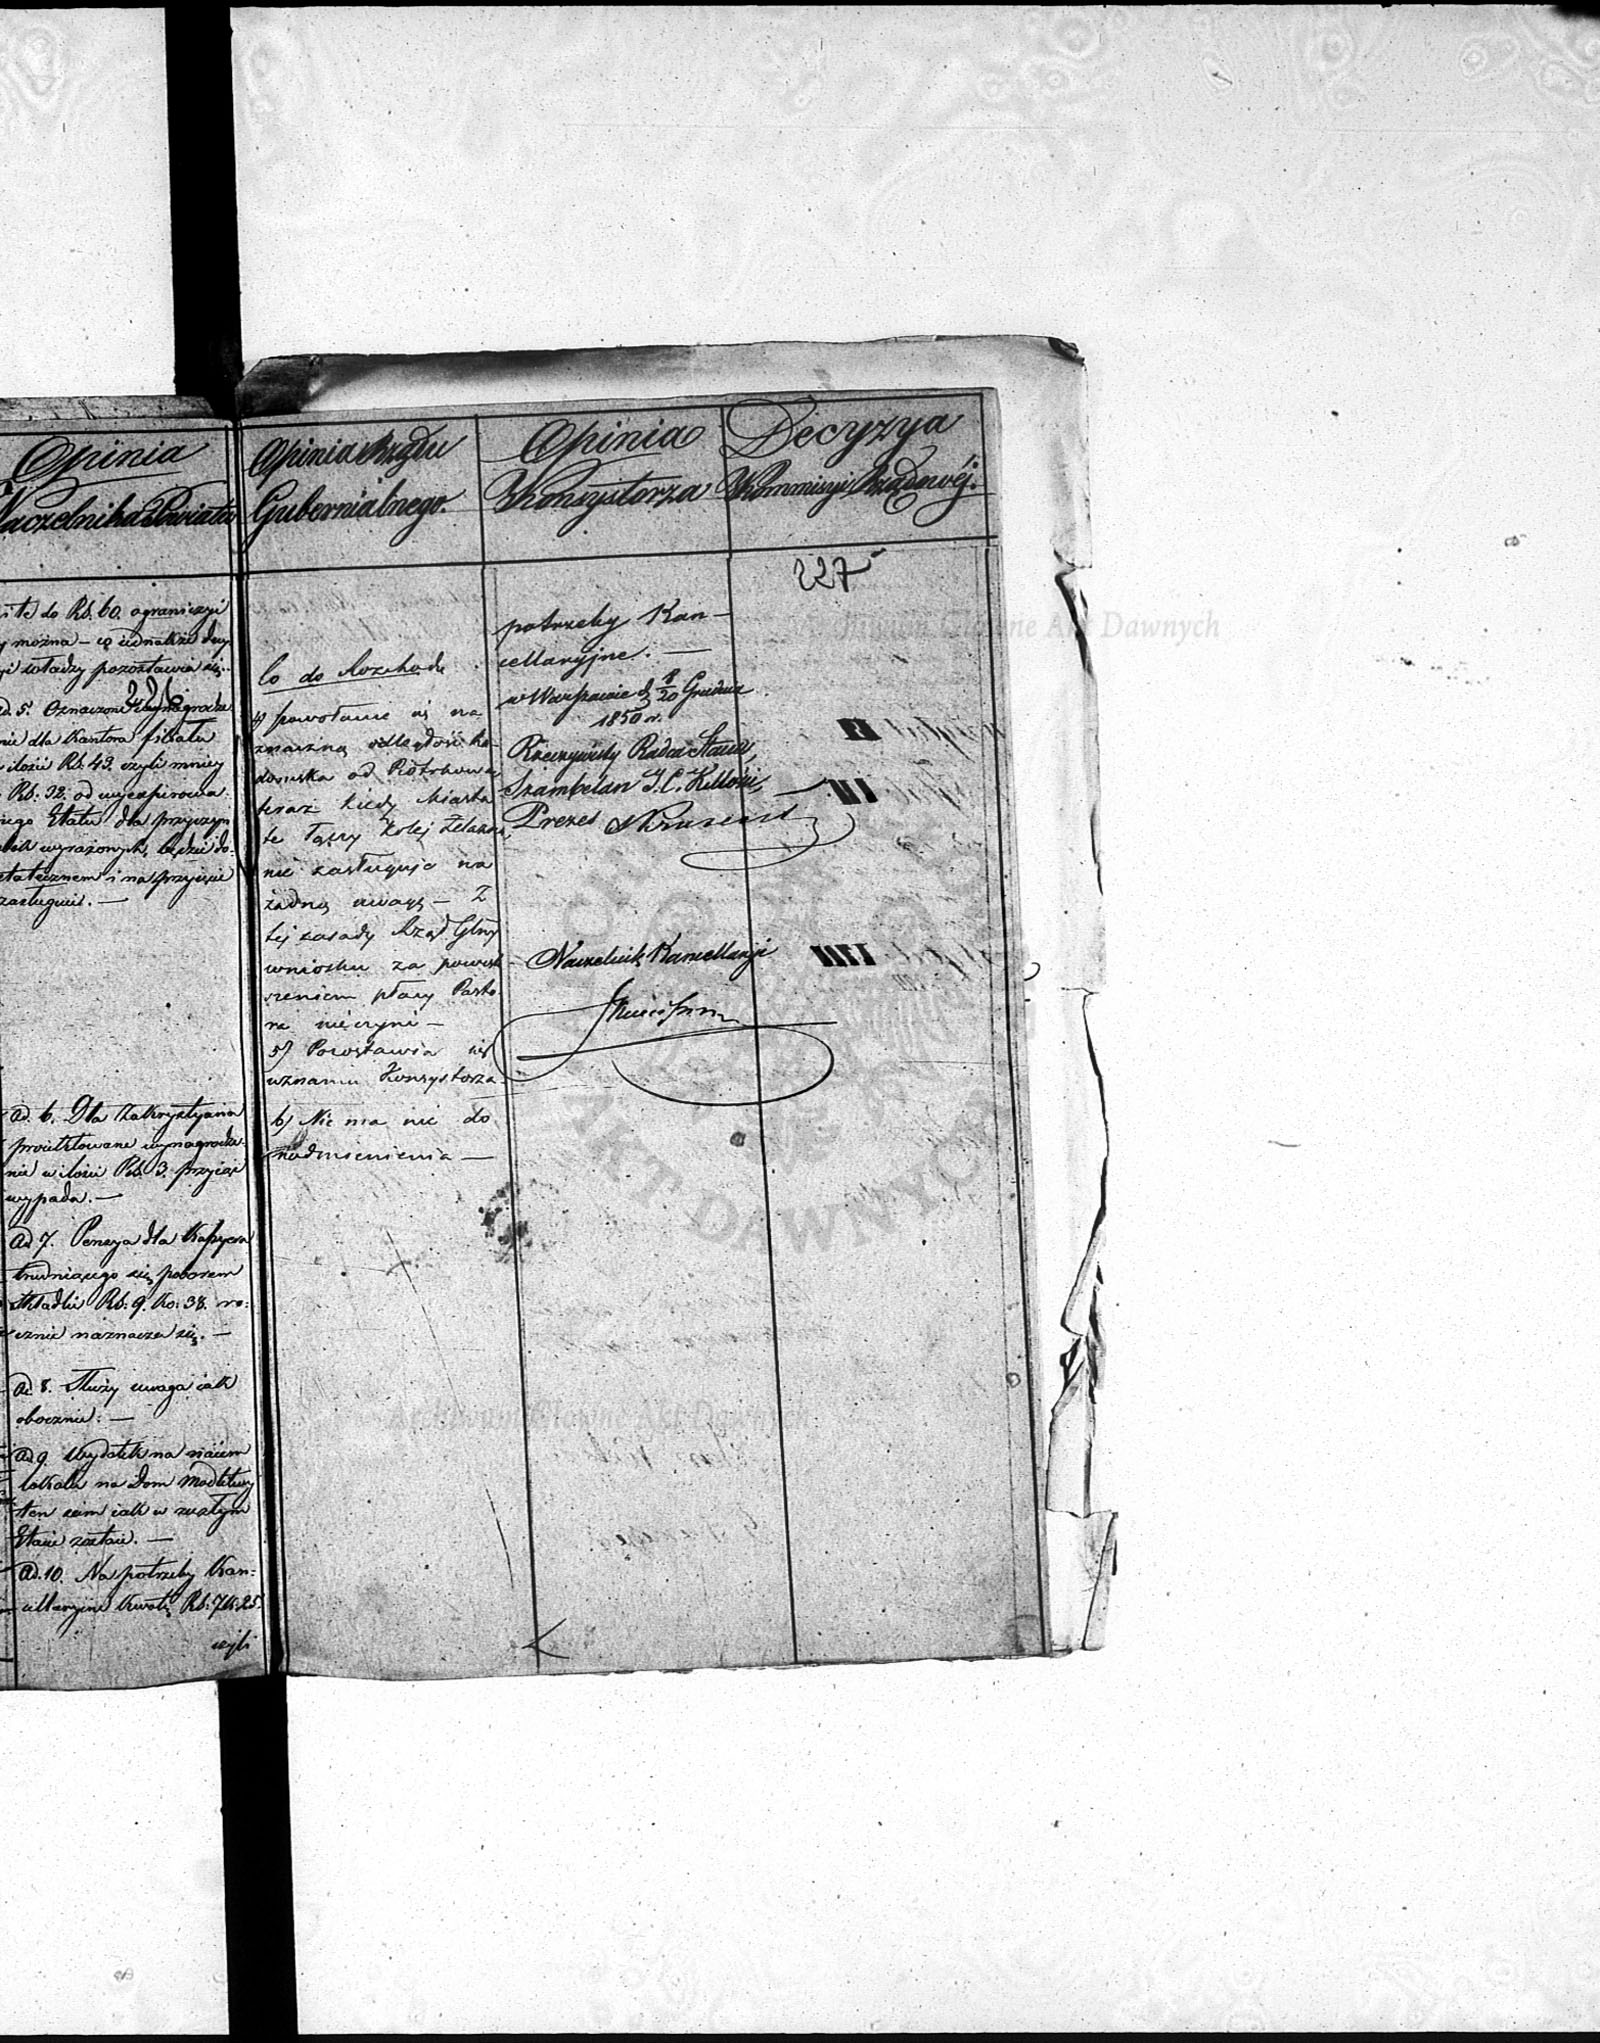 Opinia
Naczelnika Powiatu
ite do Rs. 60. ograniczyć
by można – co jednakże decy
zyi władzy pozostawia się. –
ad. 5. Oznaczone wynagrodze
nie dla Kantora filiału
w ilości Rs. 49. czyli mniej
Rs. 32. od wyexpirowa-
nego Etatu dla przyczyn
obok wyrażonych, będzie do-
statecznem i na przyjęcie
zasługuie. –
ad. 6. Dla Zakrystyana
proiektowane wynagrodze-
nie w ilości Rs. 3. przyiąć
wypada. –
ad 7. Pensya dla Kassyera
trudniącego się poborem
składki Rs. 9. ko: 38. ro-
cznie naznacza się. –
ad. 8. Służy uwaga iak
obocznie. –
ad 9. Wydatek na naiem
lokalu na Dom Modlitwy
ten sam iak w zeszłym
Etacie zostaie. –
ad. 10. Na potrzeby Kan-
cellaryine kwotę Rs: 7 k: 25
czyli
Opinia Rządu
Gubernialnego.
Co do Rozchodu
4) powołanie się na
znaczną odległość Ra-
domska od Piotrkowa
teraz kiedy Miasta
te łączy Kolej Żelazna,
nie zasługuje na
żadną uwagę – Z
tej zasady Rząd Glny
wniosku za powięk-
szeniem płacy Pasto-
ra nieczyni –
5) Pozostawia się
uznaniu Konsystorza
6) Nie ma nic do
nadmienienia –
Opinia
Konsystorza
potrzeby Kan-
cellaryjne. –
w Warszawie d. 8/20 Grudnia
1850 r.
Rzeczywisty Radca Stanu,
Szambelan J. C. K. Mości,
Prezes
Naczelnik Kancellaryi
Decyzya
Kommissyi Rządowéj.
227
Archiwum Główne Akt Dawnych
AKT DAWNYCH
Archiwum Główne Akt Dawnych